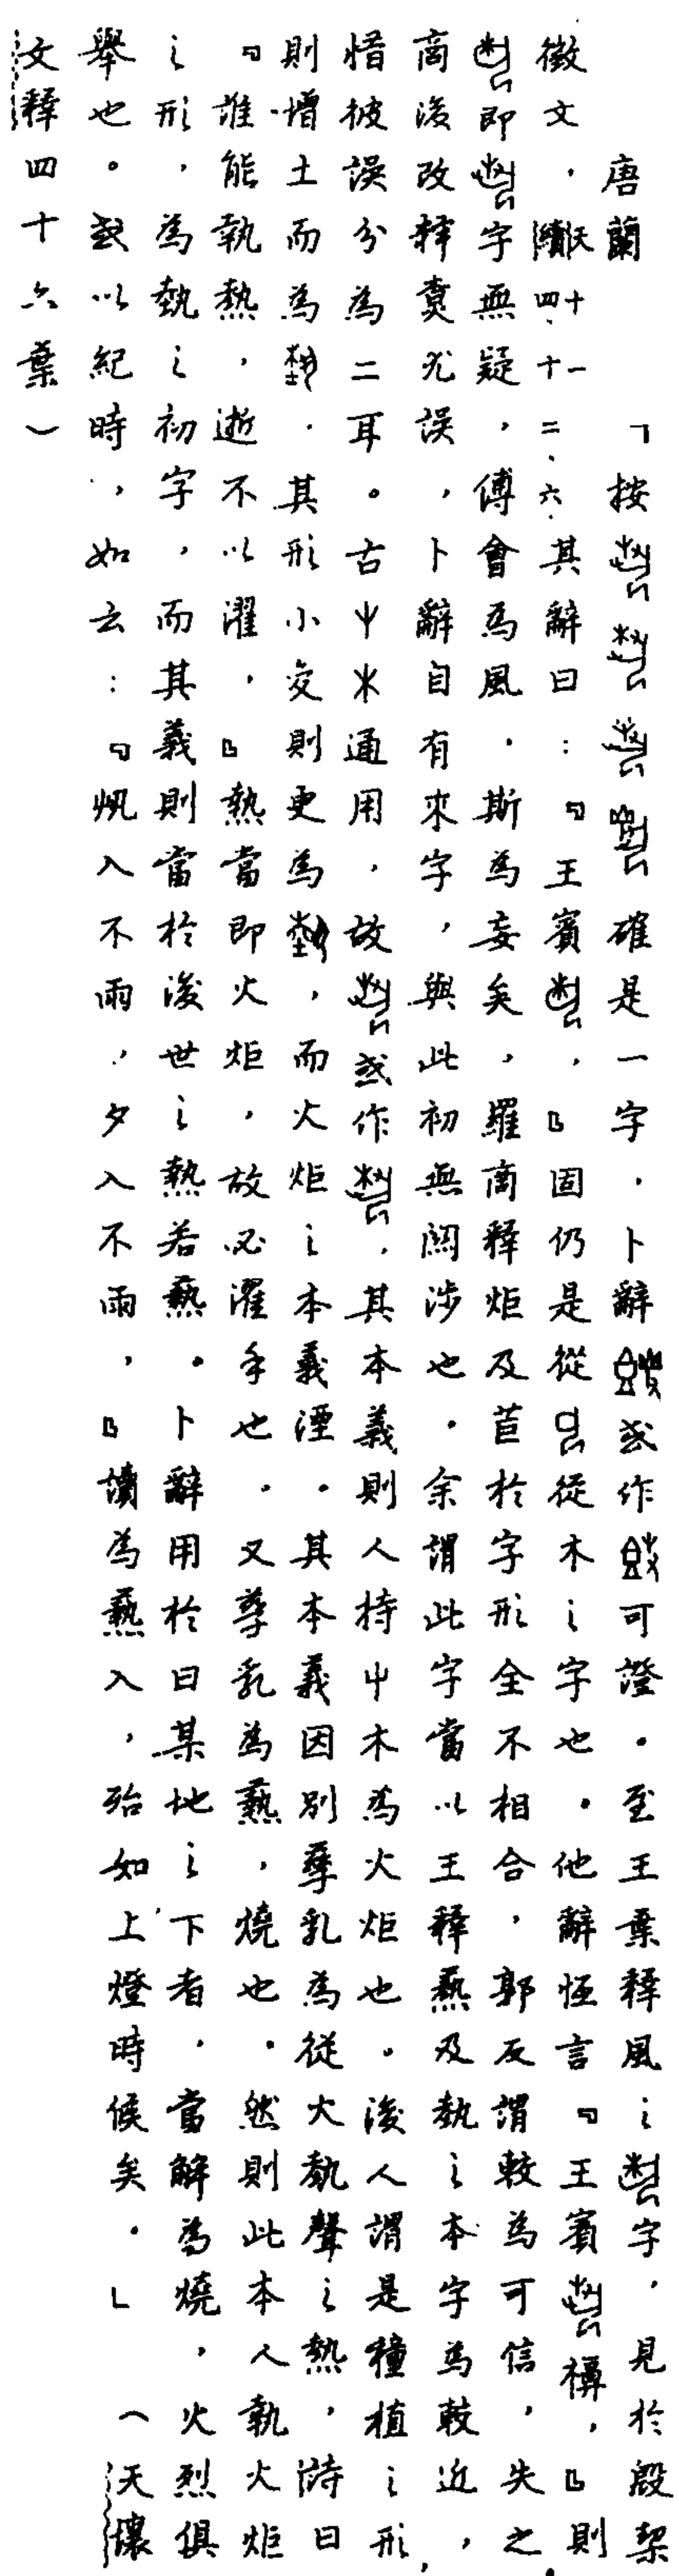 唐蘭「按確是一字．卜辭或作可證。至王葉釋風之字，見於殷契
徵文，天十一續四、十二、六．其辭曰：『王賓，』固仍是從從木之字也．他辭恆言『王賓禣，』則
即字無疑，傅會為風．斯為妄矣，羅商釋炬及苣於字形全不相合，郭反謂較為可信，失之．
商後改釋賁尤誤，卜辭自有來字，與此初無關涉也．余謂此字當以王釋爇及埶之本字為較近，
惜彼誤分為二耳。古屮木通用，故或作，其本義則人持屮木為火炬也。後人謂是種植之形，
則增土而為．其形小變則更為，而火炬之本義湮．其本義因別孳乳為從火埶聲之熱，詩曰
『誰能執熱，逝不以濯，』熱當即火炬，故必濯手也．又孳乳為爇，燒也．然則此本人執火炬
之形，為埶之初字，而其義則當於後世之熱若爇。卜辭用於日某地之下者，當解為燒，火烈俱
舉也。或以紀時，如云：『入不雨，夕入不雨，』讀為爇入，殆如上燈時候矣．」（天壤
文釋四十六葉）